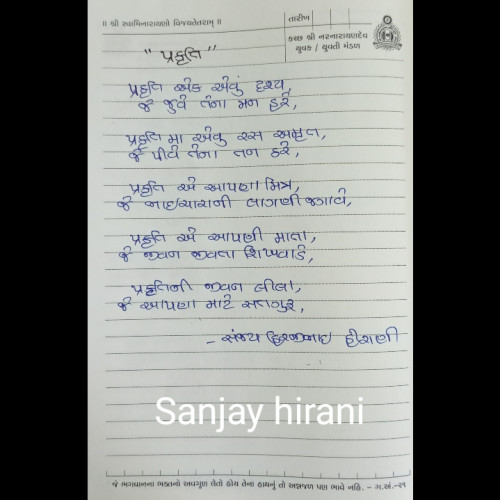 ॥ શ્રી સ્વામિનારાયણો વિજયતેતરામ્ ॥
તારીખ
કચ્છ શ્રી નરનારાયણદેવ
યુવક / યુવતી મંડળ
"પ્રકૃતિ"
પ્રકૃતિ એક એવું દૃશ્ય,
જે જુવે તેના મન હરે,
પ્રકૃતિ મા એવુ રસ અમૃત,
જે પીવે તેના તન હરે,
પ્રકૃતિ એ આપણા મિત્ર,
જે ભાઇચારાની લાગણી જગાવે,
પ્રકૃતિ એ આપણી માતા,
જે જીવન જીવતા શિખવાડે,
પ્રકૃતિની જીવન લીલા,
જે આપણા માટે સતગુરૂ,
- સંજય હિરાણી
Sanjay hirani
જે ભગવાનના ભક્તનો અવગુણ લેતો હોય તેના હાથનું તો અન્નજળ પણ ભાવે નહિ. - ગ.અં.-૨૧